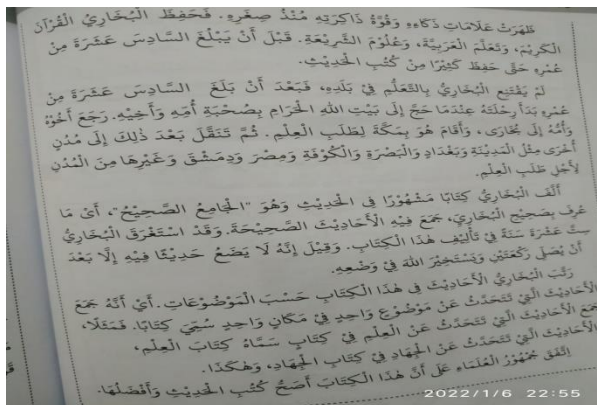 ظَهَرَتْ عَلَامَاتُ ذَكَاءِهِ وَقُوَّةُ ذَاكِرَتِهِ مُنْذُ صِغَرِهِ. فَحَفِظَ الْبُخَارِيُّ الْقُرْآنَ
الْكَرِيْمَ، وَتَعَلَّمَ الْعَرَبِيَّةَ، وَعُلُوْمَ الشَّرِيْعَةِ. قَبْلَ أَنْ يَبْلُغَ السَّادِسَ عَشْرَةَ مِنْ
عُمْرِهِ حَتَّى حَفِظَ كَثِيْرًا مِنْ كُتُبِ الْحَدِيْثِ.
لَمْ يَقْتَنِعِ الْبُخَارِيُّ بِالتَّعَلُّمِ فِيْ بَلَدِهِ، فَبَعْدَ أَنْ بَلَغَ السَّادِسَ عَشْرَةَ مِنْ
عُمْرِهِ بَدَأَ رِحْلَتَهُ عِنْدَمَا حَجَّ إِلَى بَيْتِ اللهِ الْحَرَامِ بِصُحْبَةِ أُمِّهِ وَأَخِيْهِ. رَجَعَ أَخُوْهُ
وَأُمُّهُ إِلَى بُخَارَى، وَأَقَامَ هُوَ بِمَكَّةَ لِطَلَبِ الْعِلْمِ. ثُمَّ تَنَقَّلَ بَعْدَ ذَلِكَ إِلَى مُدُنٍ
أُخْرَى مِثْلُ الْمَدِيْنَةِ وَبَغْدَادَ وَالْبَصْرَةِ وَالْكُوْفَةِ وَمِصْرَ وَدِمَشْقَ وَغَيْرِهَا مِنَ الْمُدُنِ
لِأَجْلِ طَلَبِ الْعِلْمِ.
أَلَّفَ الْبُخَارِيُّ كِتَابًا مَشْهُوْرًا فِي الْحَدِيْثِ وَهُوَ "الْجَامِعُ الصَّحِيْحُ"، أَيْ مَا
عُرِفَ بِصَحِيْحِ الْبُخَارِيِّ، جَمَعَ فِيْهِ الْأَحَادِيْثَ الصَّحِيْحَةَ. وَقَدْ اسْتَغْرَقَ الْبُخَارِيُّ
سِتَّ عَشْرَةَ سَنَةً فِيْ تَأْلِيْفِ هَذَا الْكِتَابِ. وَقِيْلَ إِنَّهُ لَا يَضَعُ حَدِيْثًا فِيْهِ إِلَّا بَعْدَ
أَنْ يُصَلِّيَ رَكْعَتَيْنِ وَيَسْتَخِيْرَ اللهَ فِيْ وَضْعِهِ.
رَتَّبَ الْبُخَارِيُّ الْأَحَادِيْثَ فِي هَذَا الْكِتَابِ حَسَبَ الْمَوْضُوْعَاتِ. أَيْ أَنَّهُ جَمَعَ
الْأَحَادِيْثَ الَّتِيْ تَتَحَدَّثُ عَنْ مَوْضُوْعٍ وَاحِدٍ فِيْ مَكَانٍ وَاحِدٍ سُمِّيَ كِتَابًا. فَمَثَلًا،
جَمَعَ الْأَحَادِيْثَ الَّتِيْ تَتَحَدَّثُ عَنْ الْعِلْمِ فِيْ كِتَابٍ سَمَّاهُ كِتَابَ الْعِلْمِ،
الْأَحَادِيْثَ الَّتِيْ تَتَحَدَّثُ عَنْ الْجِهَادِ فِيْ كِتَابِ الْجِهَادِ، وَهٰكَذَا.
اِتَّفَقَ جُمْهُوْرُ الْعُلَمَاءِ عَلَى أَنَّ هٰذَا الْكِتَابَ أَصَحُّ كُتُبِ الْحَدِيْثِ وَأَفْضَلُهَا.
2022/1/6 22:55